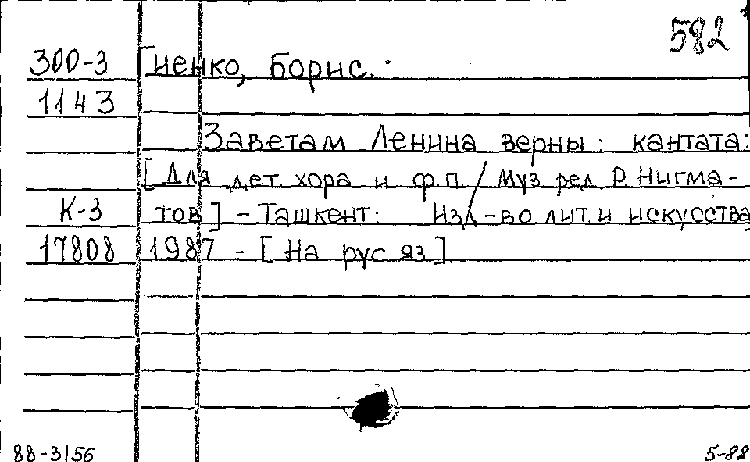 582
300-3 Гиенко, Борис.
1143
Заветам Ленина верны: кантата:
[Для дет. хора и ф.п / Муз ред Р. Нигма-
К-3 тов] - Ташкент: Изд-во лит. и искусства
17808 1987 - [На рус яз]
88-3156 5-88